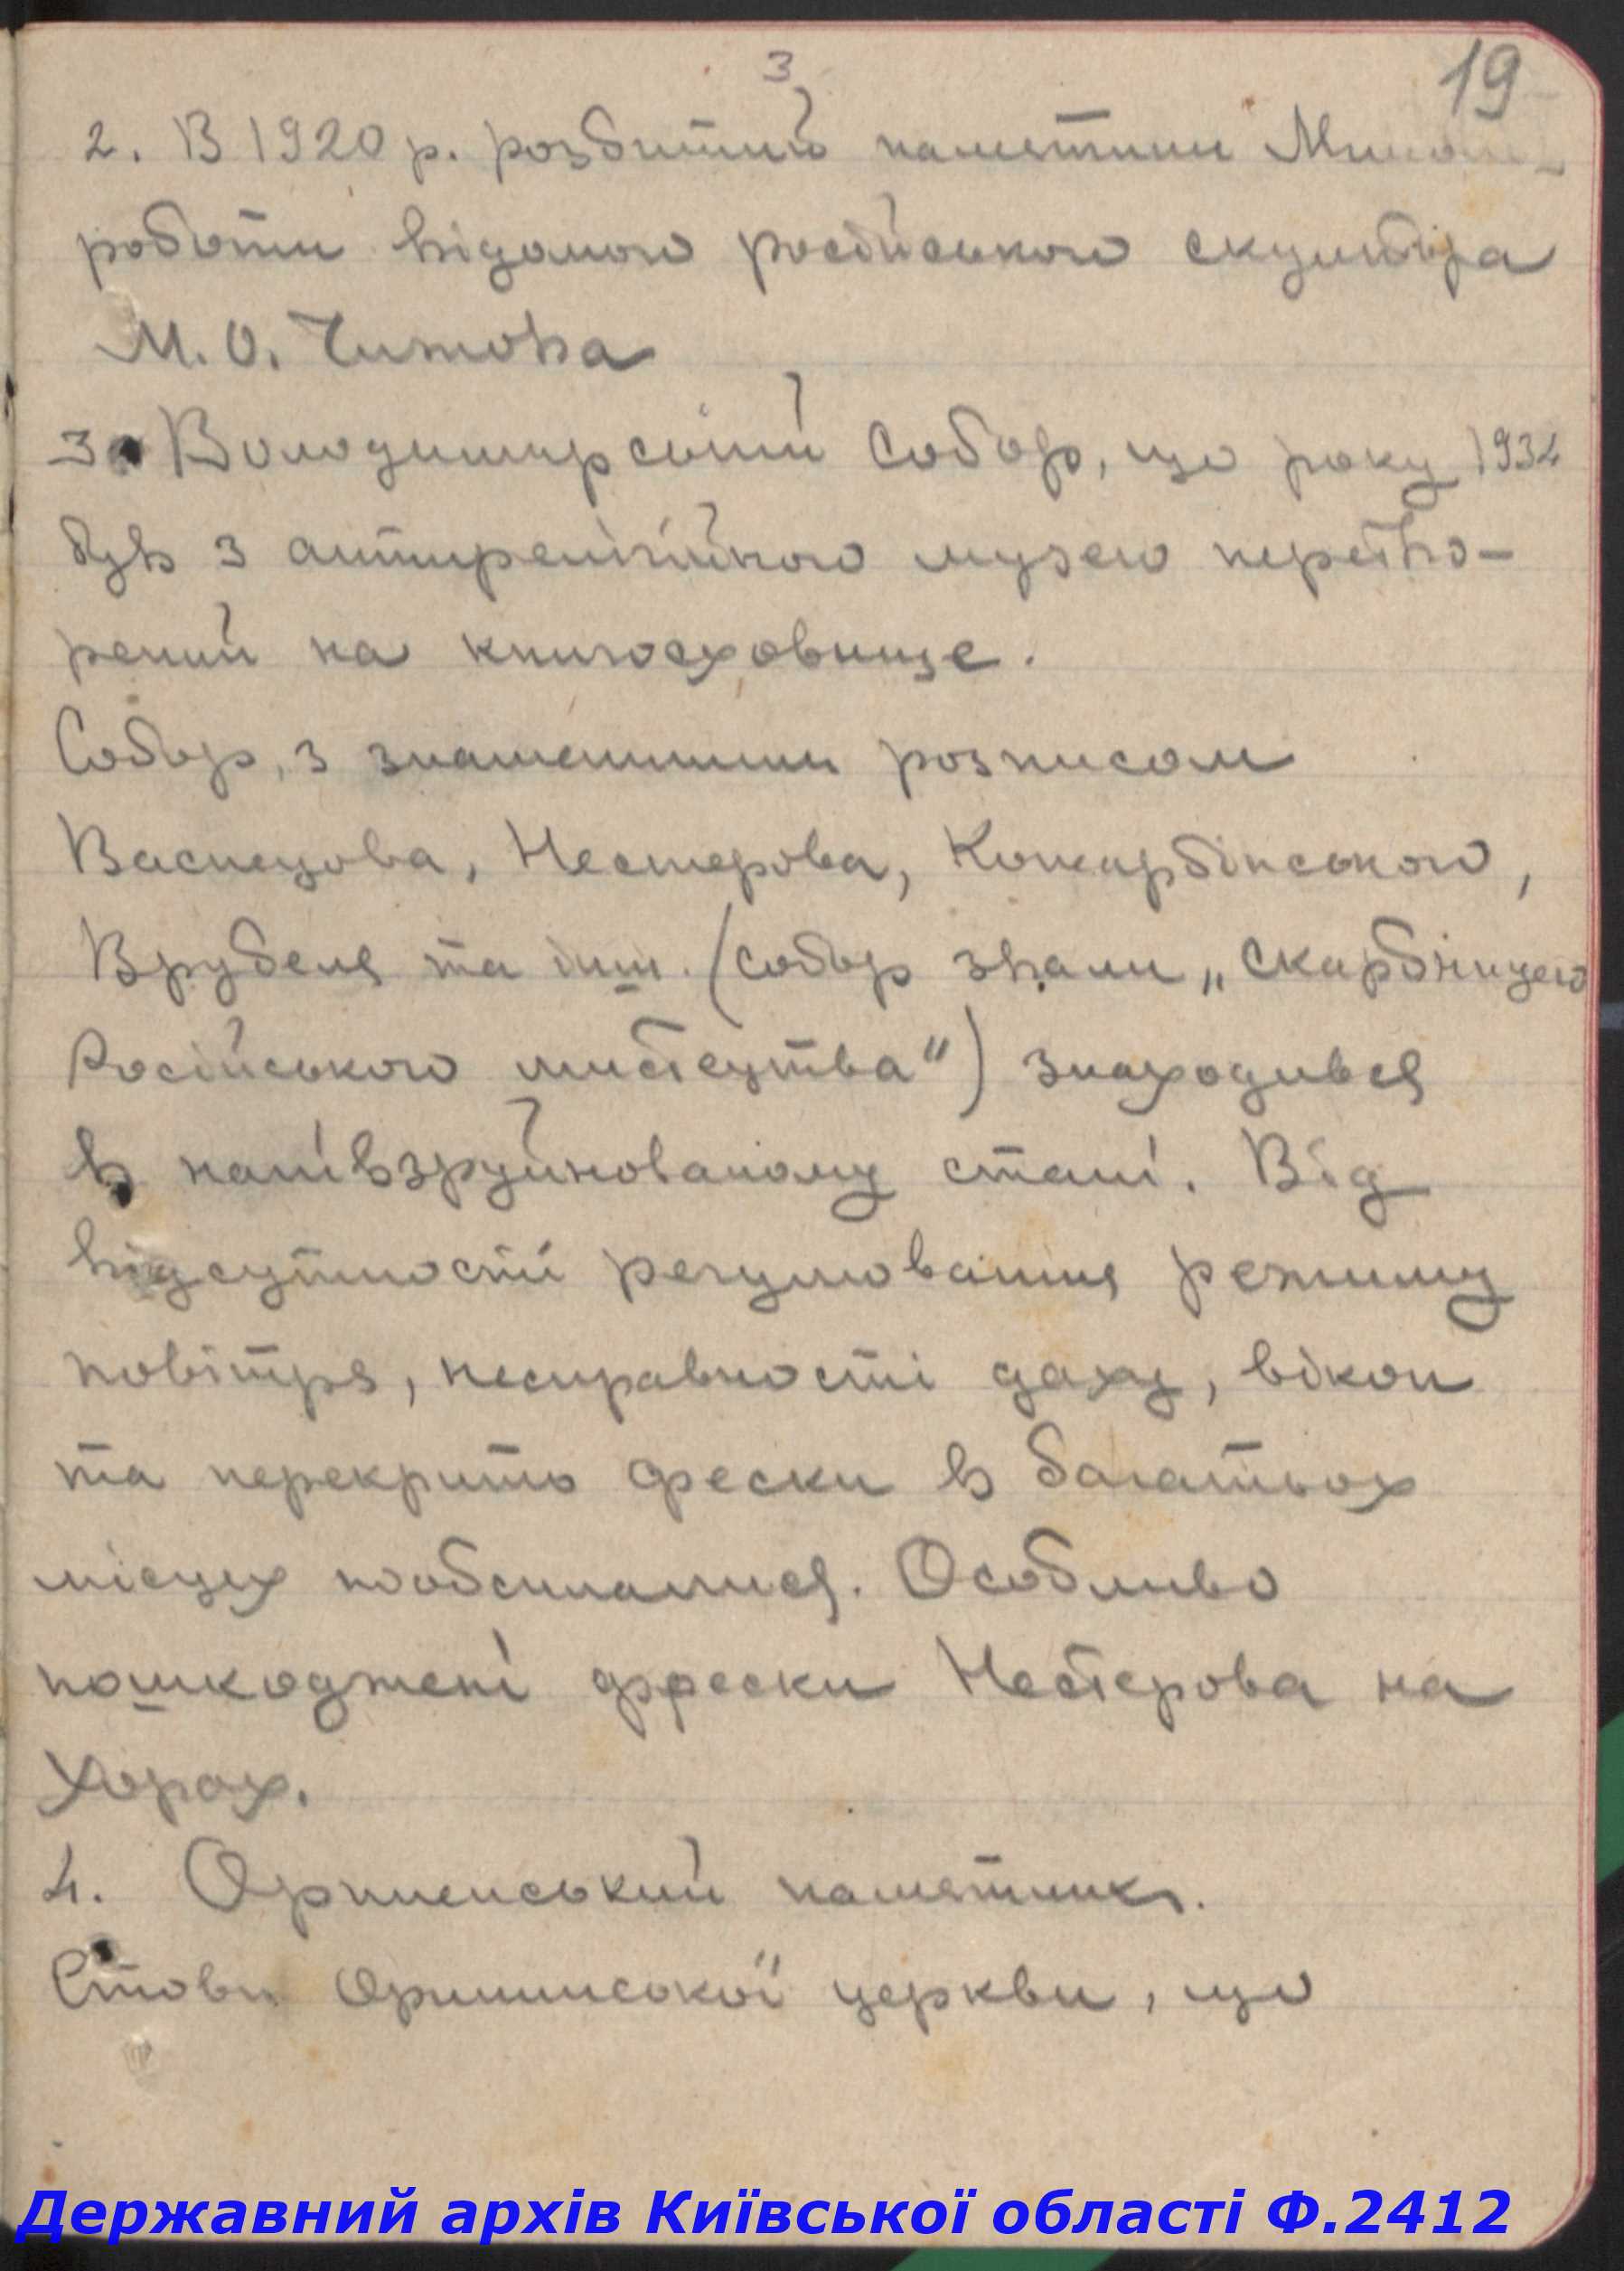 3
19
2. В 1920 р. розбитий памятник
роботи відомого російського скульптора
М. О. Чижова
3. Володимирський Собор, що року 1934
був з антирелігійного музею перетво-
рений на книгосховище.
Собор, з знаменитим розписом
Васнецова, Нестерова, Котарбінського,
Врубеля та інш. (собор звали „Скарбницею
Російського мистецтва“) знаходився
в напівзруйнованому стані. Від
відсутности регулювання режиму
повітря, несправности даху, вікон
та перекрить фрески в багатьох
місцях пообсипалися. Особливо
пошкоджені фрески Нестерова на
хорах.
4. Ірининський памятник.
Стовп Ірининської церкви, що
Державний архів Київської області Ф.2412